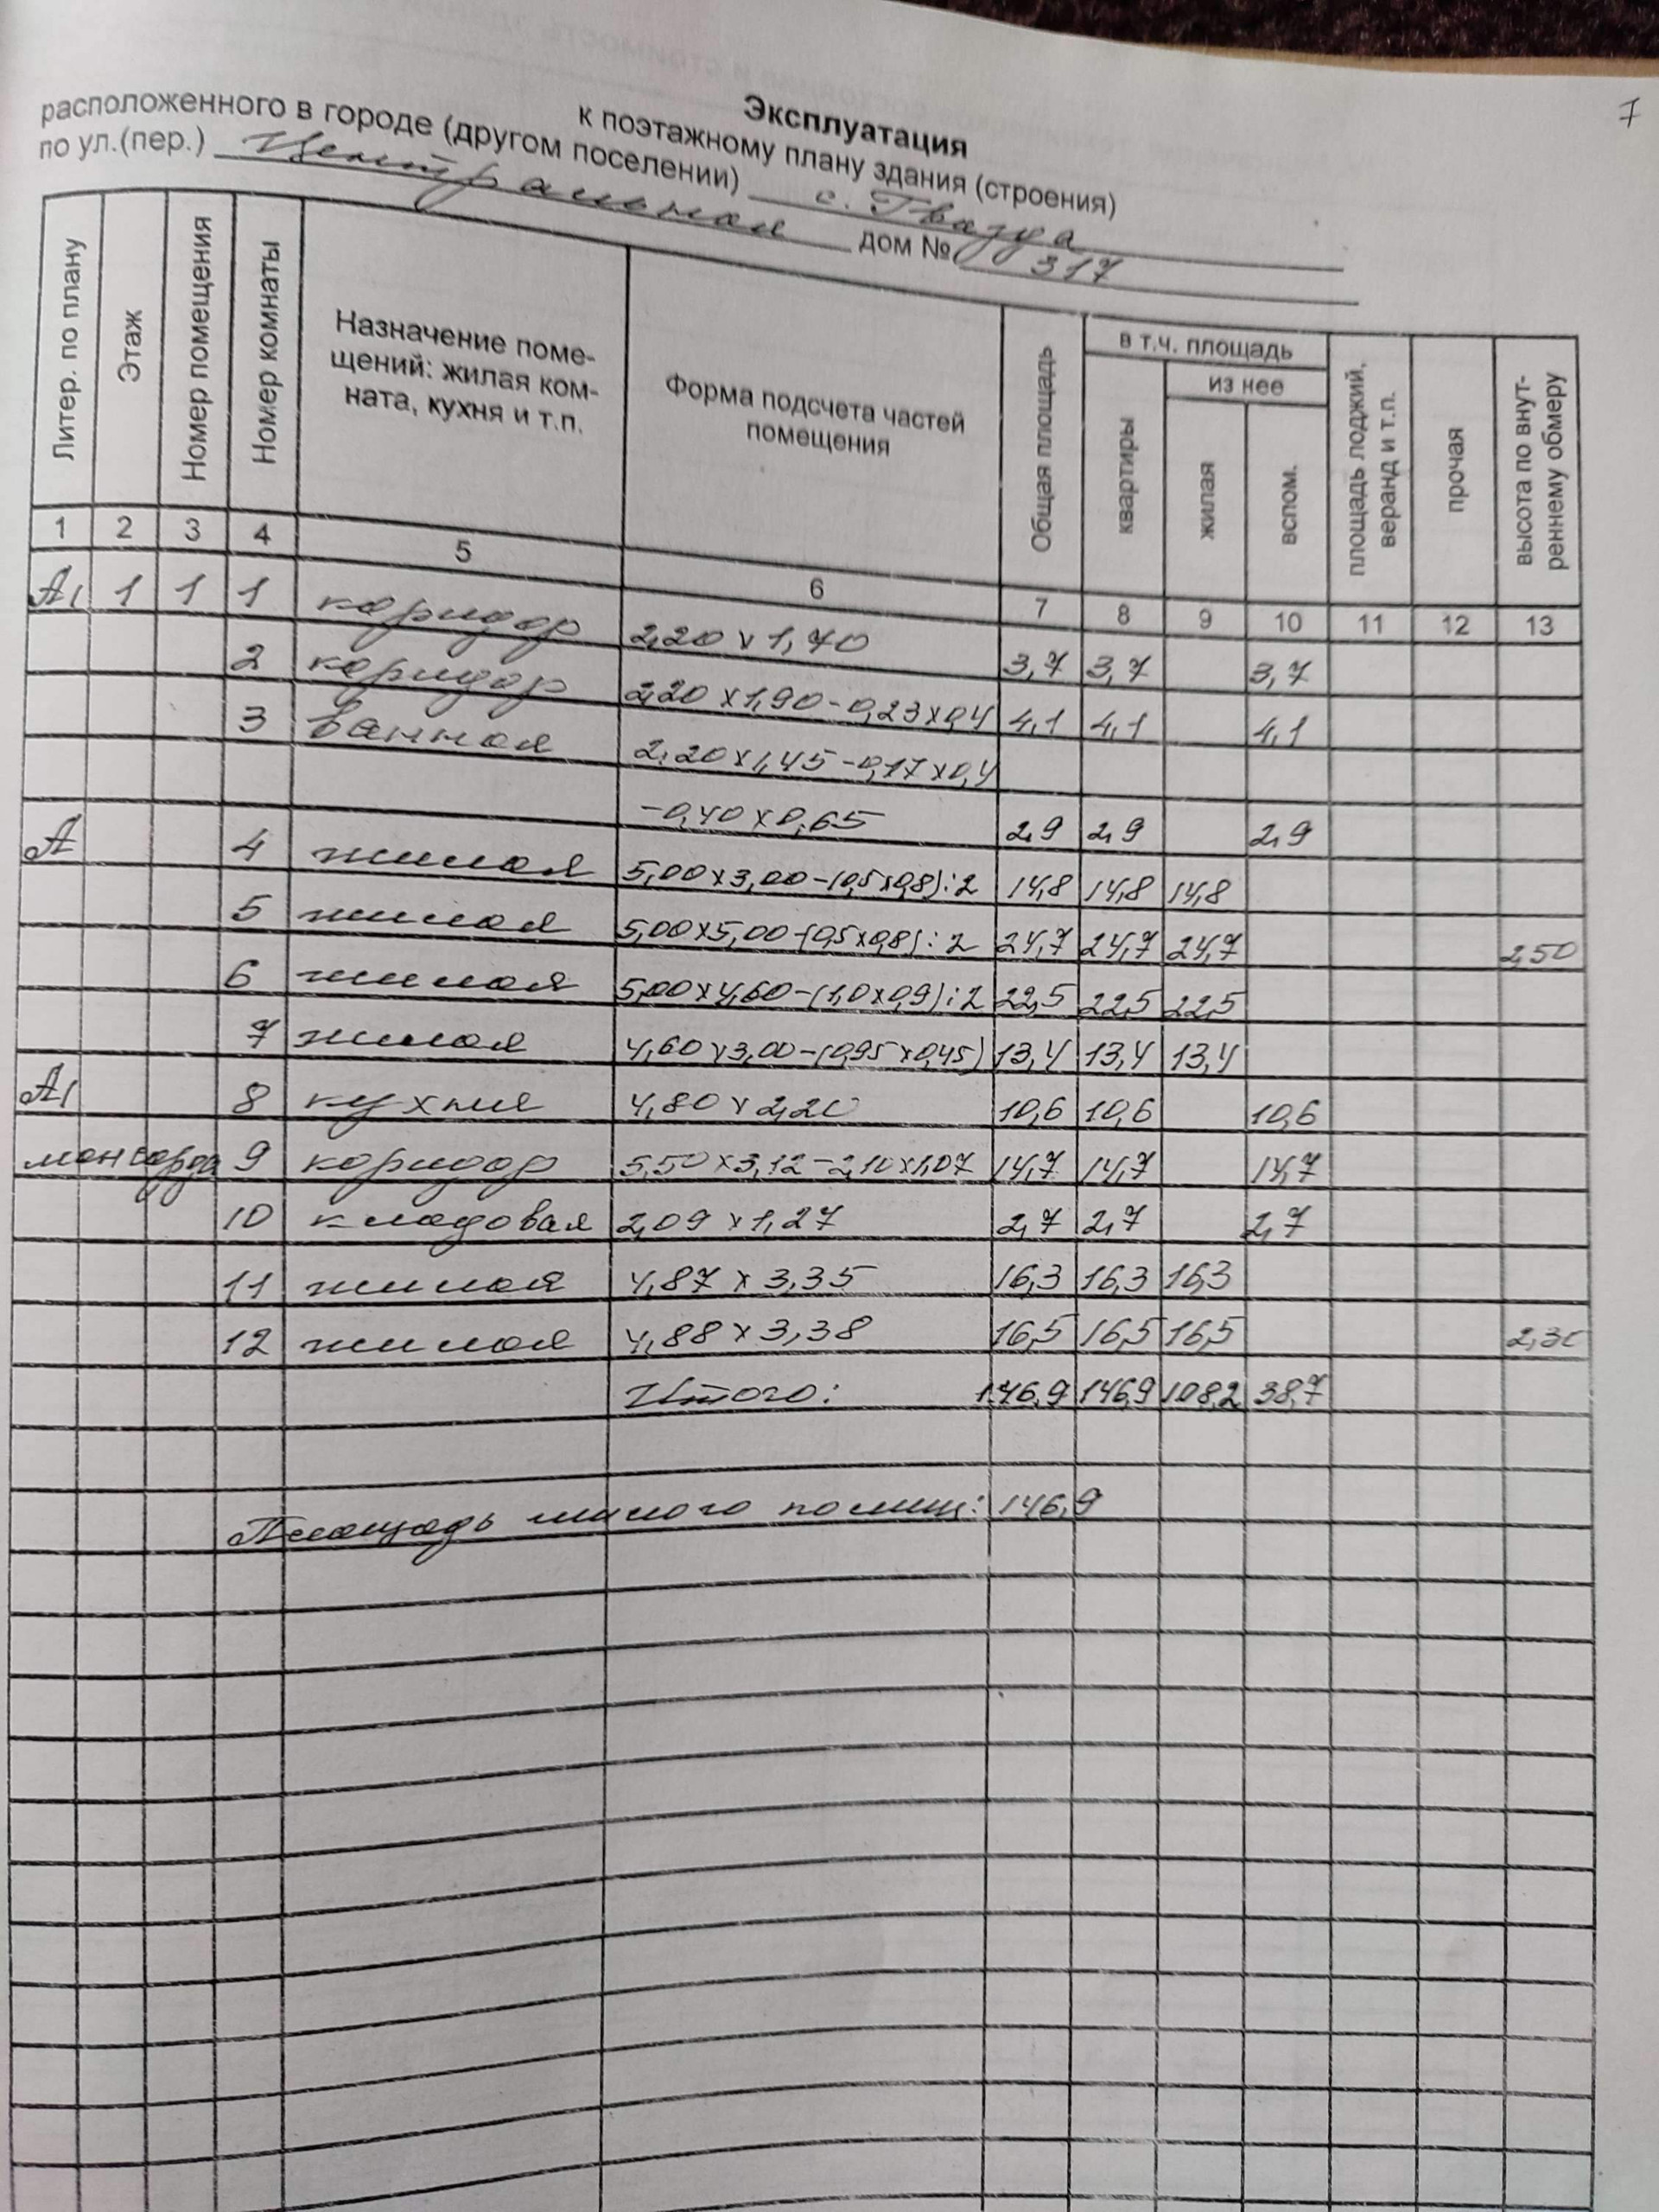 7
Эксплуатация
к поэтажному плану здания (строения)
расположенного в городе (другом поселении) с. Гвазда
по ул.(пер.) Центральная дом № 317
Литер. по плану
Этаж
Номер помещения
Номер комнаты
Назначение поме-
щений: жилая ком-
ната, кухня и т.п.
Форма подсчета частей
помещения
Общая площадь
в т.ч. площадь
квартиры
из нее
жилая
вспом.
площадь лоджий,
веранд и т.п.
прочая
высота по внут-
реннему обмеру
1 2 3 4 5 6 7 8 9 10 11 12 13
А1 1 1 1 коридор 2,20 х 1,70 3,7 3,7 3,7
2 коридор 2,20 х 1,90 - 0,23 х 0,4 4,1 4,1 4,1
3 ванная 2,20 х 1,45 - 0,17 х 0,4
- 0,40 х 0,65 2,9 2,9 2,9
А 4 жилая 5,00 х 3,00 - (0,5 х 0,8) : 2 14,8 14,8 14,8
5 жилая 5,00 х 5,00 - (0,5 х 0,8) : 2 24,7 24,7 24,7 2,50
6 жилая 5,00 х 4,60 - (1,0 х 0,9) : 2 22,5 22,5 22,5
7 жилая 4,60 х 3,00 - (0,95 х 0,45) 13,4 13,4 13,4
А1 8 кухня 4,80 х 2,20 10,6 10,6 10,6
мансарда 9 коридор 5,50 х 3,12 - 2,10 х 1,07 14,7 14,7 14,7
10 кладовая 2,09 х 1,27 2,7 2,7 2,7
11 жилая 4,87 х 3,35 16,3 16,3 16,3
12 жилая 4,88 х 3,38 16,5 16,5 16,5 2,30
Итого: 146,9 146,9 108,2 38,7
Площадь жилого помещ: 146,9